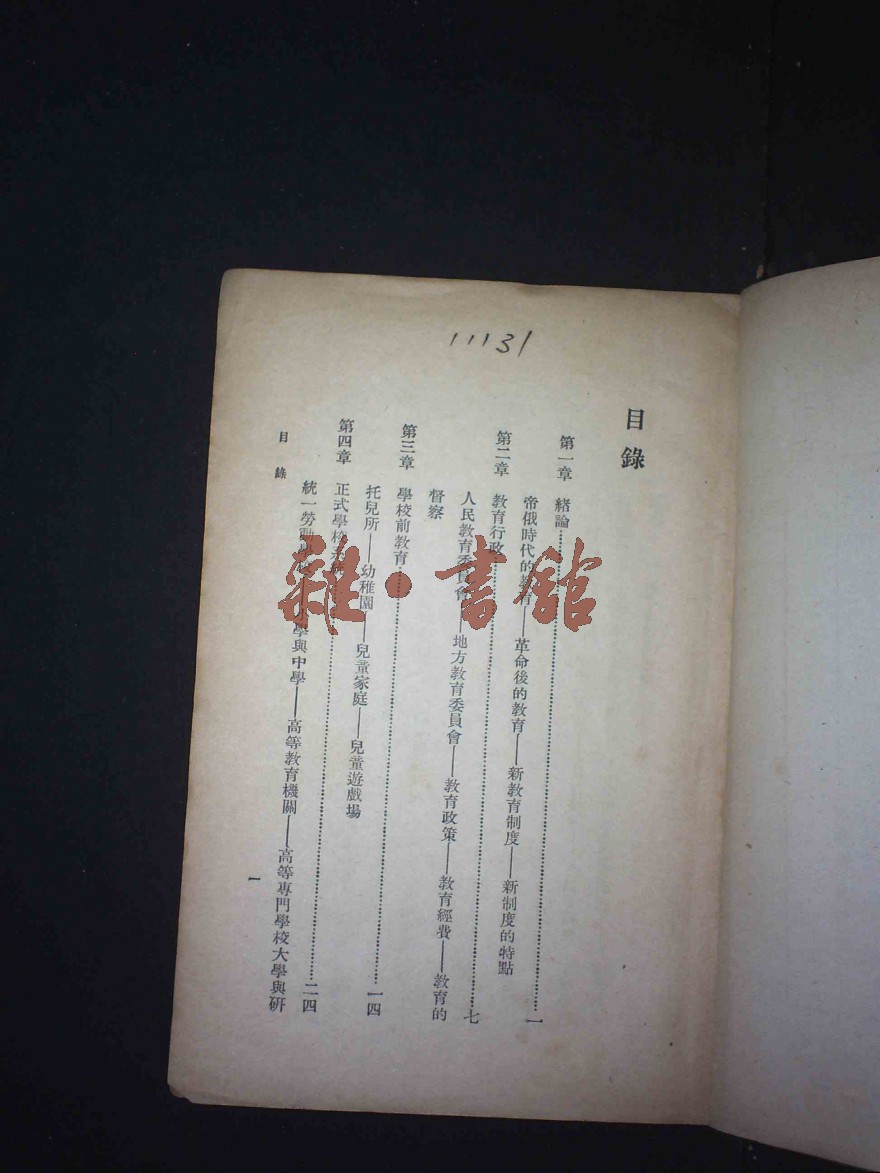 11131
目錄
第一章 緒論……一
帝俄時代的教育——革命後的教育——新教育制度——新制度的特點
第二章 教育行政……七
人民教育委員會——地方教育委員會——教育政策——教育經費——教育的
督察
第三章 學校前教育……一四
托兒所——幼稚園——兒童家庭——兒童遊戲場
第四章 正式學校……二四
統一勞動學校 小學與中學——高等教育機關——高等專門學校大學與研
目錄
一
雜·書館